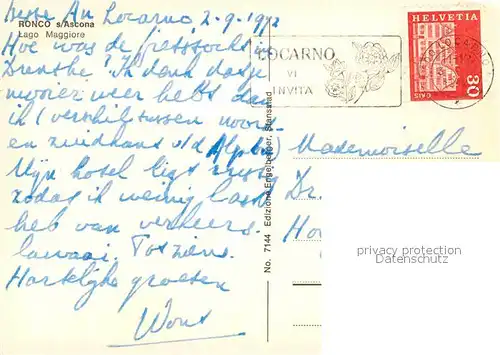 Beste An Locarno 2-9-1972
RONCO s/Ascona
Lago Maggiore
Hoe was de fietstocht
Drenthe? Ik denk dat je
mooier weer hebt dan
ik (verschil tussen noor-
en zuidkant v/d Alpen)
Mijn hotel ligt rustig
zodat ik weinig last
heb van verkeers-
lawaai. Tot ziens.
Hartelijke groeten
Wout
No. 7144 Edizione Engelberger, Stansstad
LOCARNO
VI
INVITA
HELVETIA
GAIS
30
Mademoiselle
Dr.
Ho
privacy protection
Datenschutz